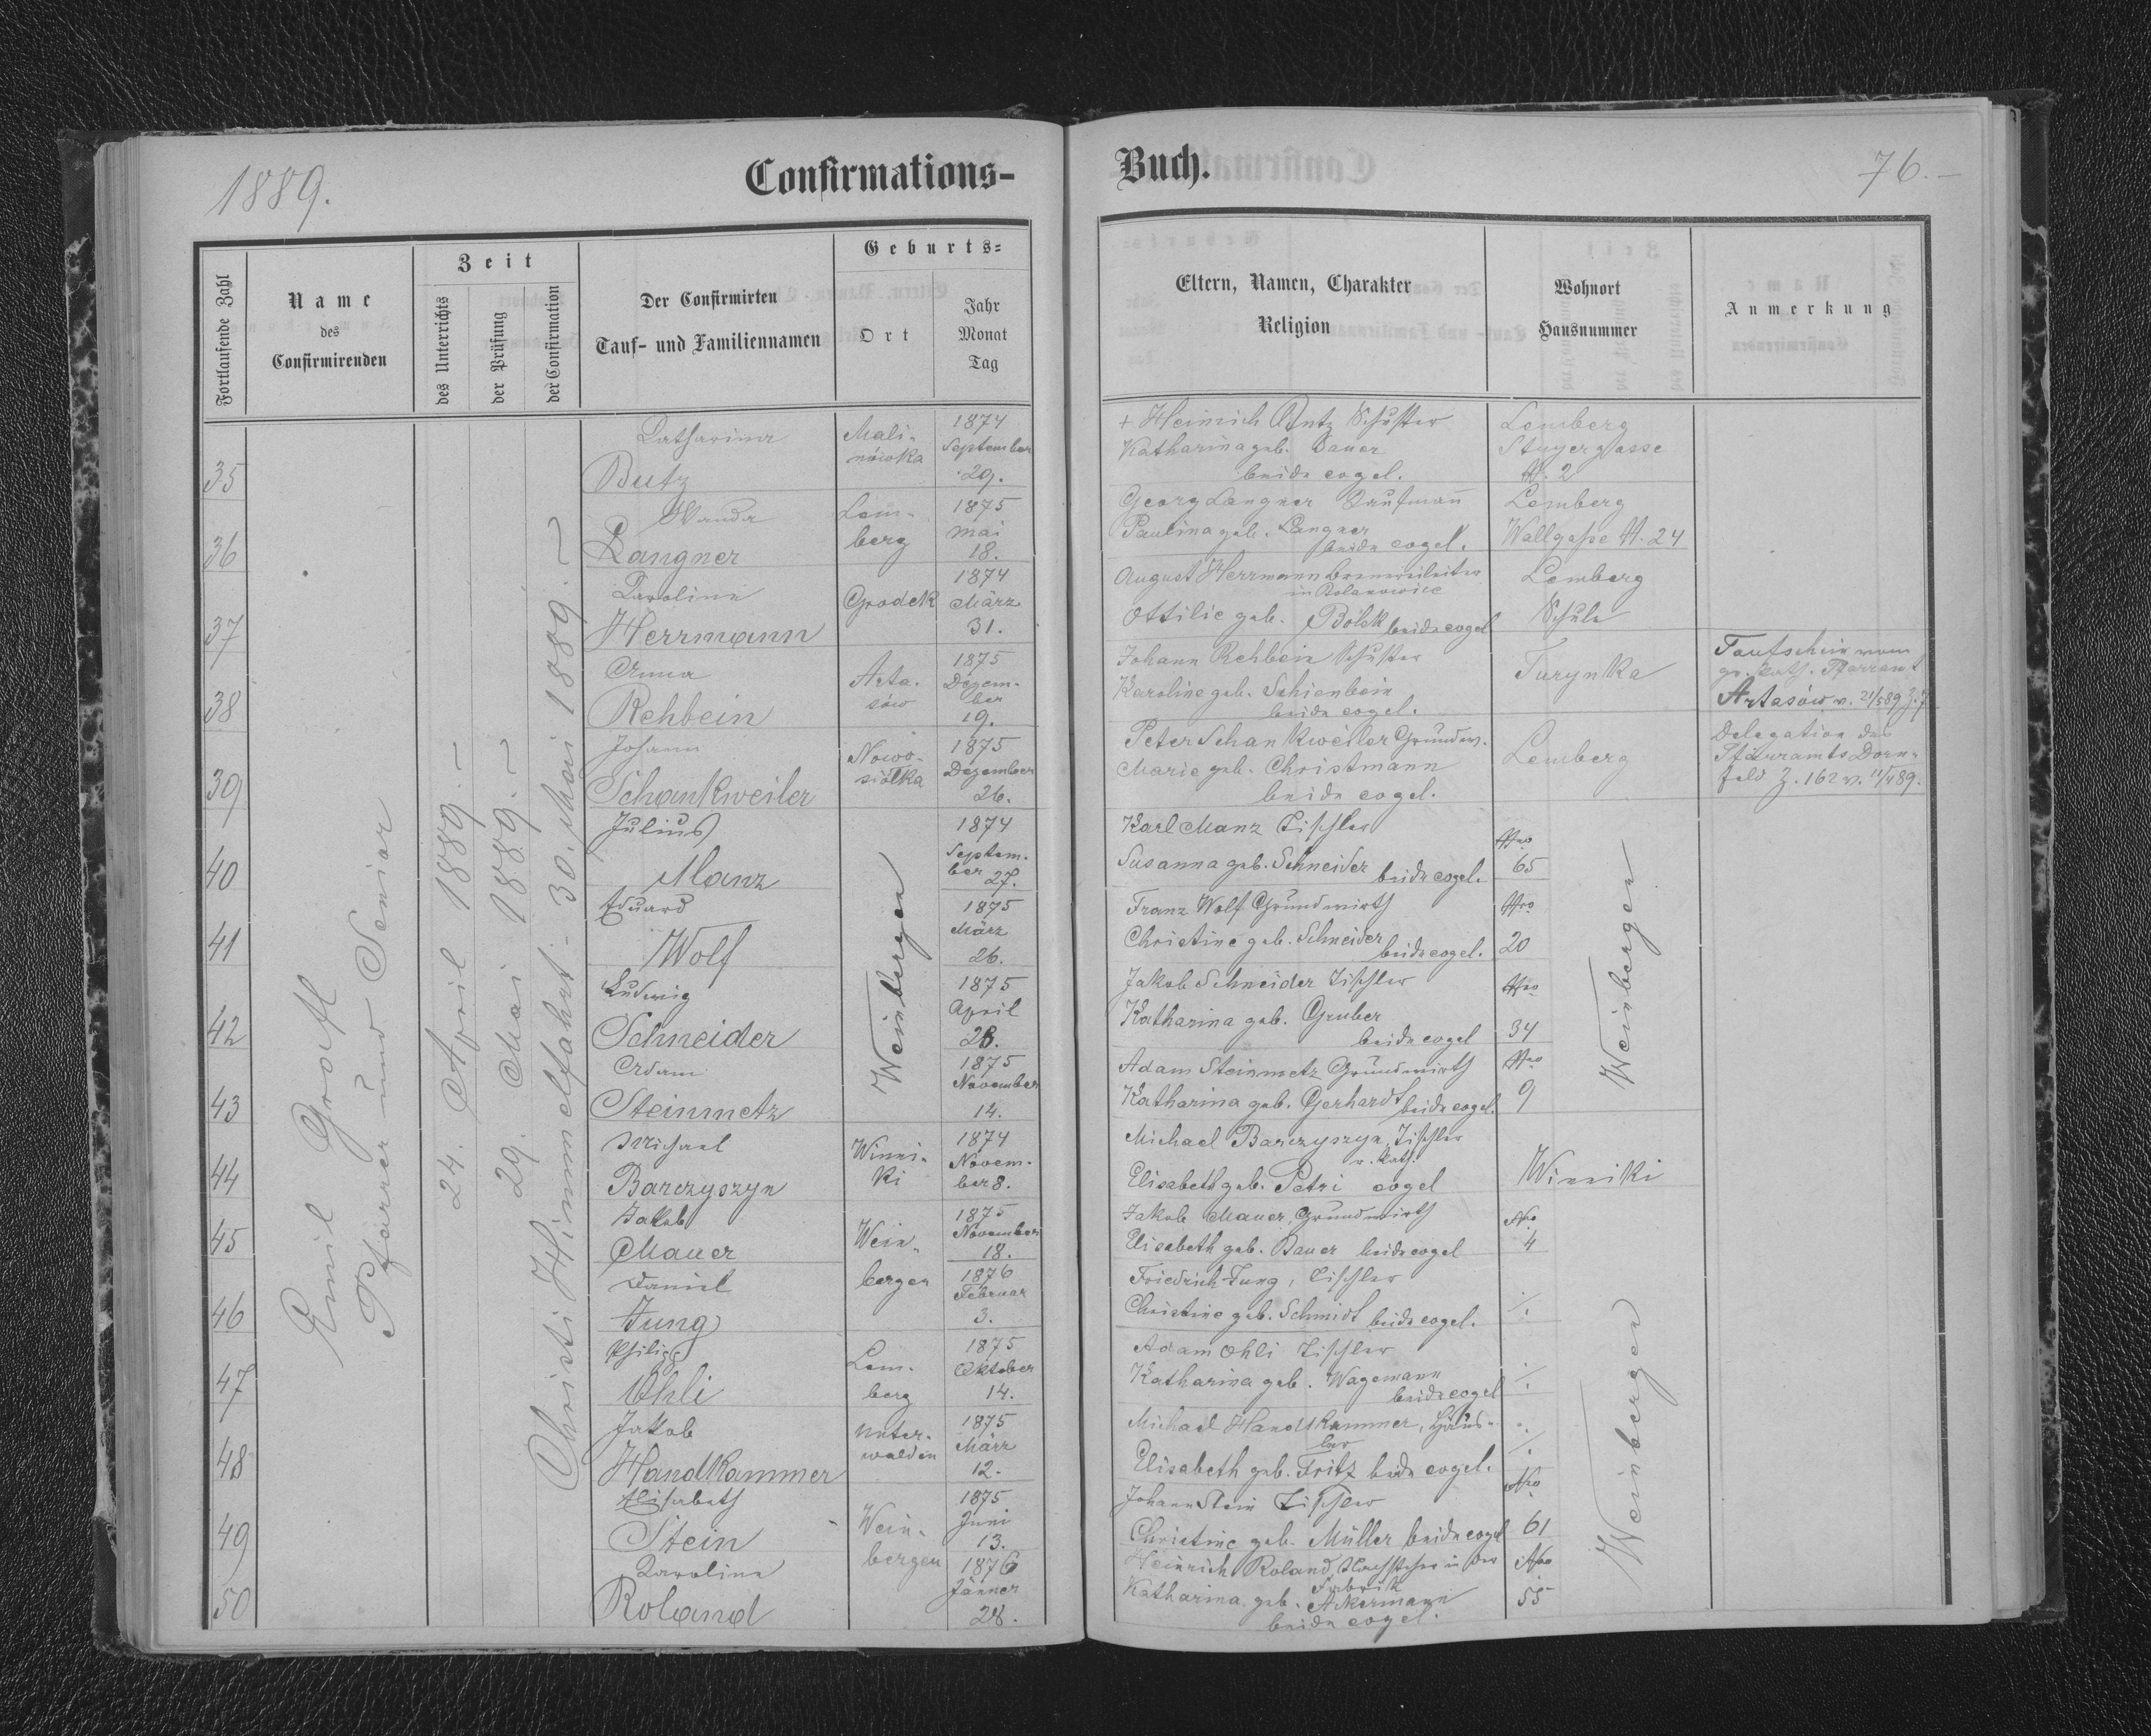 1889.
Confirmations-
Buch.
76.-
Fortlaufende Zahl
Name
des
Confirmirenden
Zeit
des Unterrichts
der Prüfung
der Confirmation
Der Confirmirten
Tauf- und Familiennamen
Geburts-
Ort
Jahr
Monat
Tag
Eltern, Namen, Charakter
Religion
Wohnort
Hausnummer
Anmerkung
Emil Grofl
Pfarrer und Senior
24. April 1889.-
29. Mai 1889.-
Christi Himmelfahrt - 30. Mai 1889.-
35
Katharina
Butz
Mali-
nówka
1874
September
29.
+ Heinrich Butz Schuster
Katharina geb. Bauer
beide evgel.
Lemberg
Stryergasse
N. 2
36
Wanda
Langner
Lem-
berg
1875
Mai
18.
Georg Langner Kaufmann
Paulina geb. Langner
beide evgel.
Lemberg
Wallgasse N. 24
37
Karoline
Herrmann
Grodek
1874
März
31.
August Herrmann
Ottilie geb. Bölek beide evgel
Lemberg
Schule
38
Anna
Rehbein
Arta-
sów
1875
Dezem-
ber
19.
Johann Rehbein Schuster
Karoline geb. Schienbein
beide evgel.
Turynka
Taufschein vom
gr. kath. Pfarramt
Artasów v. 21/5 89 Z. 7
39
Johann
Schankweiler
Nowo-
siółka
1875
Dezember
26.
Peter Schankweiler Grundw.
Marie geb. Christmann
beide evgel.
Lemberg
Delegation des
Pfarramts Dorn-
feld Z. 162 v. 11/4 89.
40
Julius
Manz
Weinbergen
1874
Septem-
ber 27.
Karl Manz Tischler
Susanna geb. Schneider beide evgel.
Nro
65
Weinbergen
41
Eduard
Wolf
1875
März
26.
Franz Wolf Grundwirth
Christine geb. Schneider beide evgel.
Nro
20
42
Ludwig
Schneider
1875
April
28.
Jakob Schneider Tischler
Katharina geb. Gruber
beide evgel
Nro
34
43
Adam
Steinmetz
1875
November
14.
Adam Steinmetz Grundwirth
Katharina geb. Gerhardt beide evgel.
Nro
9
44
Michael
Barczyszyn
Winni-
ki
1874
Novem-
ber 8.
Michael Barczyszyn, Tischler
r. kath.
Elisabeth geb. Petri evgel
Winniki
45
Jakob
Mauer
Wein-
bergen
1875
November
18.
Jakob Mauer, Grundwirth
Elisabeth geb. Bauer beide evgel
Nro
4
Weinbergen
46
Daniel
Jung
1876
Februar
3.
Friedrich Jung, Tischler
Christine geb. Schmidt beide evgel.
./.
47
Philipp
Ohli
Lem-
berg
1875
Oktober
14.
Adam Ohli Tischler
Katharina geb. Wagemann
beide evgel
./.
48
Jakob
Handkammer
Unter-
walden
1875
März
12.
Michael Handkammer, Häus-
ler
Elisabeth geb. Fritz beide evgel.
./.
49
Elisabeth
Stein
Wein-
bergen
1875
Juni
13.
Johann Stein Tischler
Christine geb. Müller beide evgel
Nro
61
50
Karoline
Roland
1876
Jänner
28.
Heinrich Roland, in der
Fabrik
Katharina geb. Ackermann
beide evgel.
Nro
55